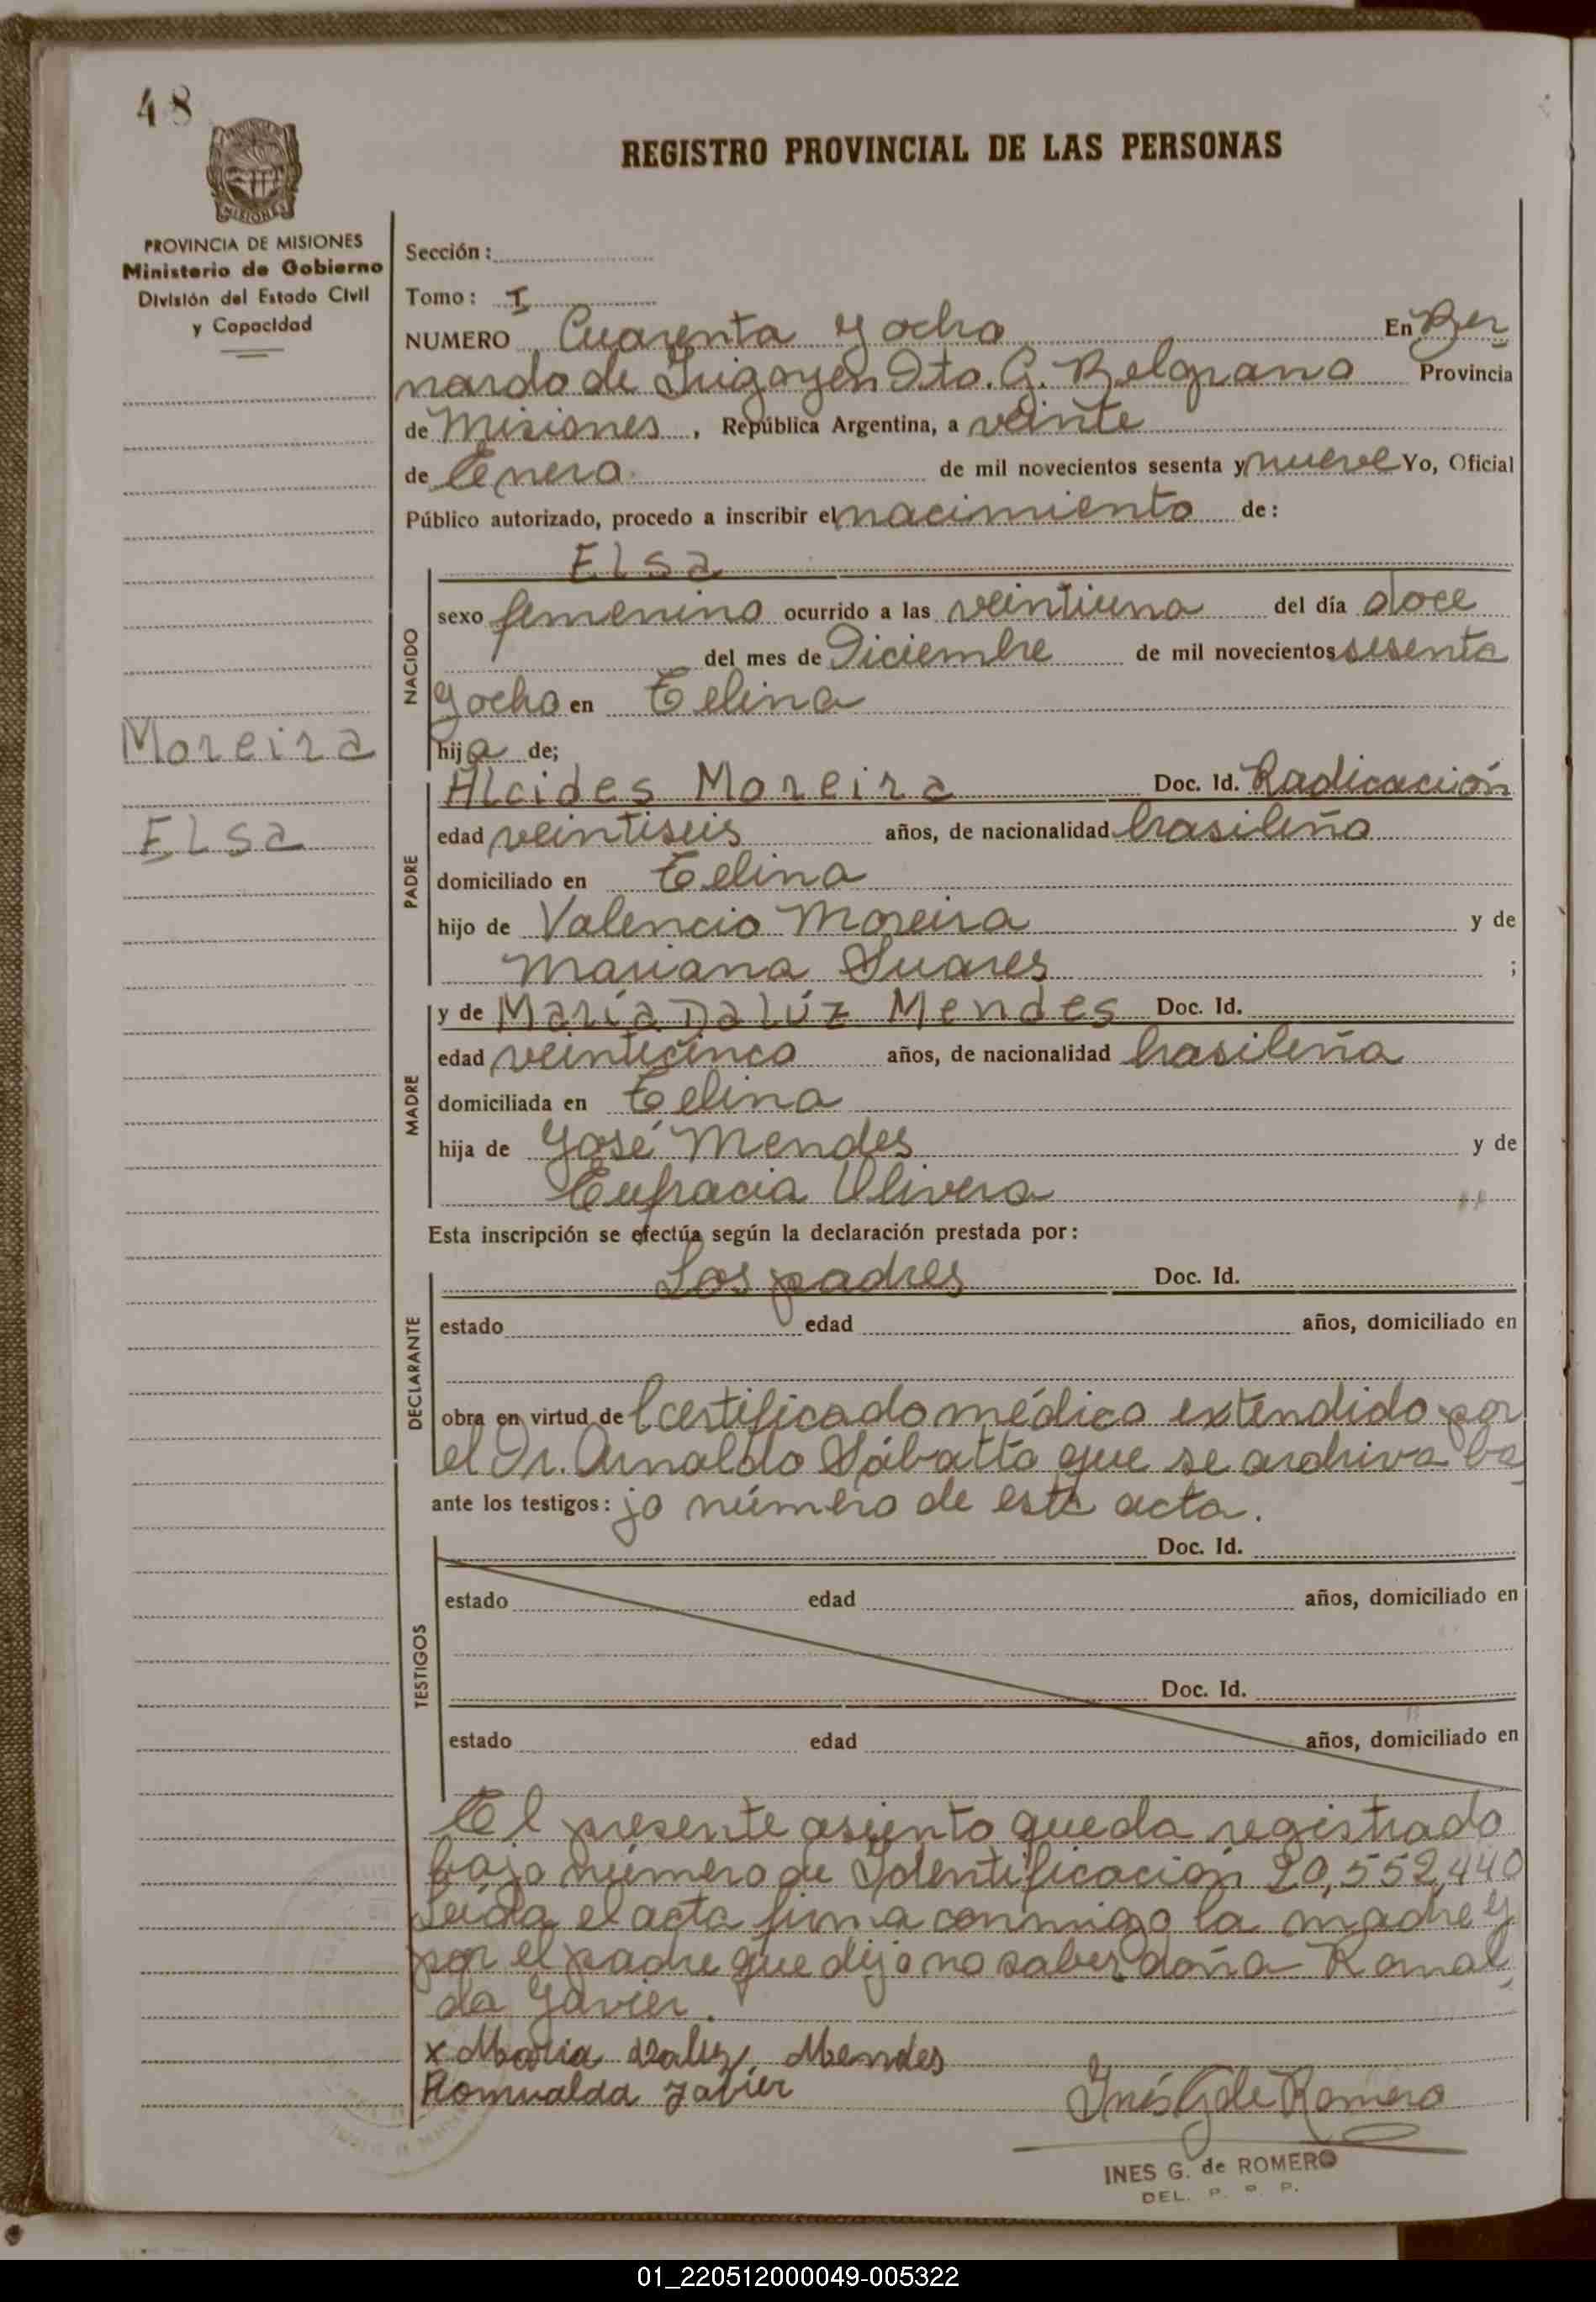 48
MISIONES
PROVINCIA DE MISIONES
Ministerio de Gobierno
División del Estado Civil
y Capacidad
REGISTRO PROVINCIAL DE LAS PERSONAS
Sección:
Tomo: I
NUMERO Cuarenta y ocho En Ber
nardo de Irigoyen Dto. G. Belgrano Provincia
de Misiones, República Argentina, a veinte
de Enero. de mil novecientos sesenta y nueve Yo, Oficial
Público autorizado, procedo a inscribir el nacimiento de:
NACIDO
Elsa
sexo femenino ocurrido a las veintiuna del día doce
del mes de Diciembre de mil novecientos sesenta
y ocho en Celina
Moreira
hija de;
PADRE
Alcides Moreira Doc. Id. Radicación
Elsa
edad veintiseis años, de nacionalidad brasileño
domiciliado en Celina
hijo de Valencio Moreira y de
Mariana Suares ;
MADRE
y de María Da Lúz Mendes Doc. Id.
edad veinticinco años, de nacionalidad brasileña
domiciliada en Celina
hija de José Mendes y de
Eufracia Olivera
Esta inscripción se efectúa según la declaración prestada por:
DECLARANTE
Los padres Doc. Id.
estado edad años, domiciliado en
obra en virtud de Certificado médico extendido por
el Dr. Arnaldo Sábatto que se archiva ba
ante los testigos: jo número de esta acta.
TESTIGOS
Doc. Id.
estado edad años, domiciliado en
Doc. Id.
estado edad años, domiciliado en
El presente asiento queda registrado
bajo número de Identificación 20,552,440
Leída el acta firma conmigo la madre y
por el padre que dijo no saber doña Romal
da Javier.
x Maria Daluz Mendes
Romualda Javier
Inés G de Romero
INES G. de ROMERO
DEL. P. P.
01_220512000049-005322